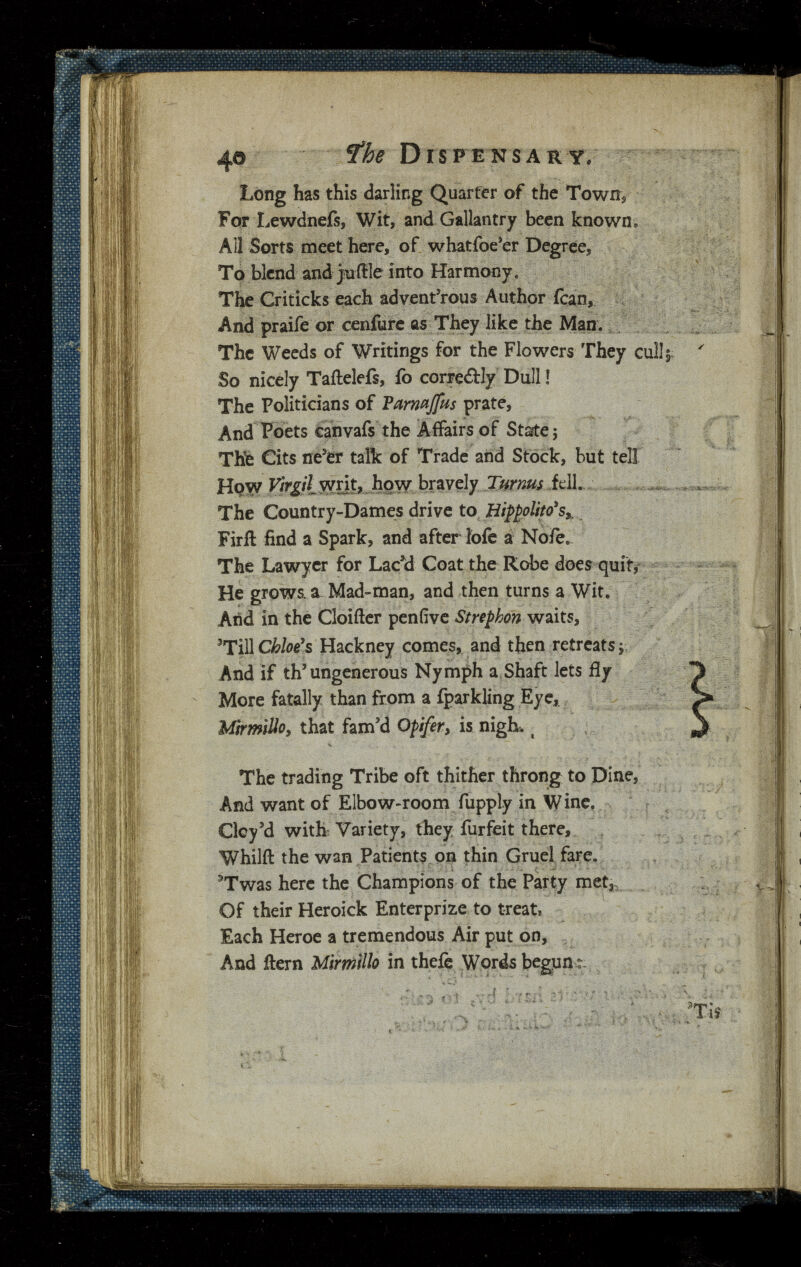 40 The DISPENSARY.
Long has this darling Quarter of the Town,
For Lewdneſs, Wit, and Gallantry been known.
All Sorts meet here, of whatſoe'er Degree,
To blend and juſtle into Harmony.
The Criticks each advent'rous Author ſcan,
And praiſe or cenſure as They like the Man.
The Weeds of Writings for the Flowers They cull;
So nicely Taſteleſs, ſo correctly Dull!
The Politicians of Parnaſſus prate,
And Poets canvaſs the Affairs of State;
The Cits ne'er talk of Trade and Stock, but tell
How Virgil writ, how bravely Turnus fell.
The Country-Dames drive to Hippolito's,
Firſt find a Spark, and after loſe a Noſe.
The Lawyer for Lac'd Coat the Robe does quit,
He grows a Mad-man, and then turns a Wit.
And in the Cloiſter penſive Strephon waits,
'Till Chloe's Hackney comes, and then retreats;
And if th' ungenerous Nymph a Shaft lets fly
More fatally than from a ſparkling Eye,
Mirmillo, that fam'd Opifer, is nigh.
The trading Tribe oft thither throng to Dine,
And want of Elbow-room ſupply in Wine.
Cloy'd with Variety, they ſurfeit there,
Whilſt the wan Patients on thin Gruel fare.
'Twas here the Champions of the Party met,
Of their Heroick Enterprize to treat.
Each Heroe a tremendous Air put on,
And ſtern Mirmillo in theſe Words begun:
'Tis